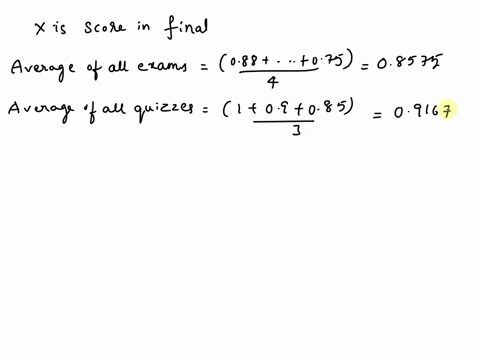 X is score in final
Average of all exams = (0.88 + ... + 0.75) / 4 = 0.8575
Average of all quizzes = (1 + 0.9 + 0.85) / 3 = 0.9167